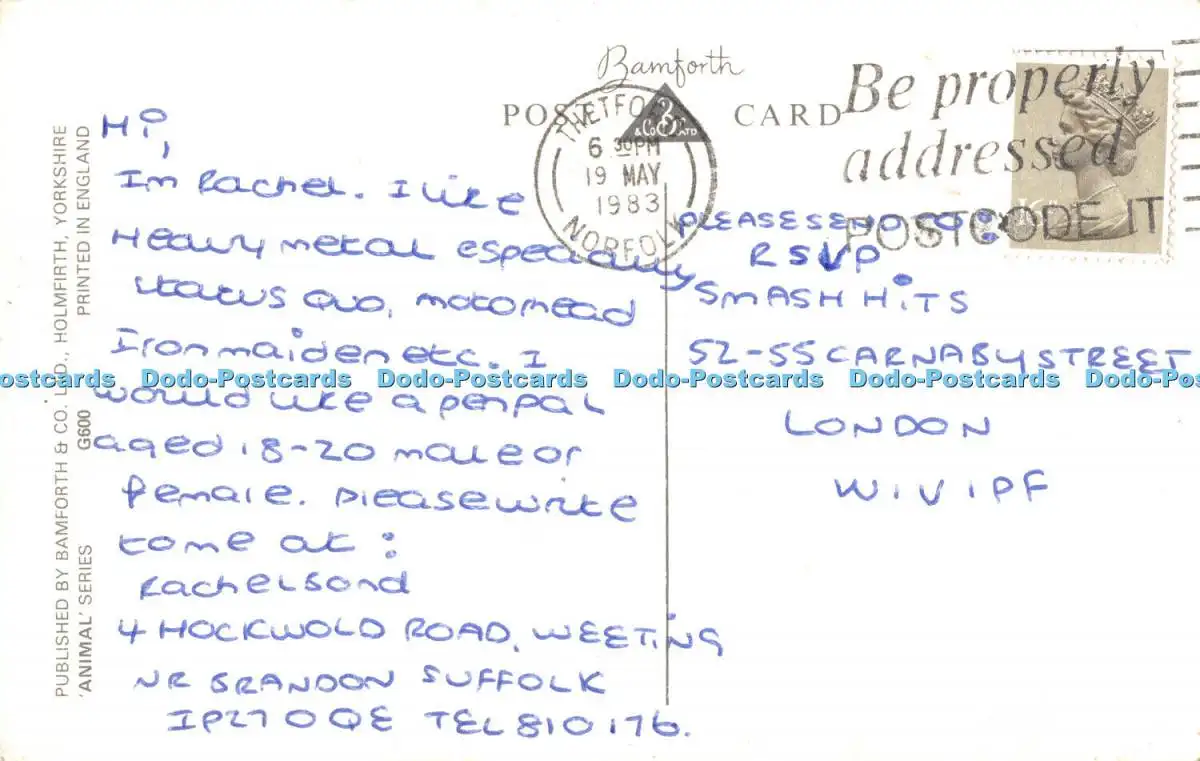 Bamforth
POST CARD
& Co LTD
THETFORD
6 30PM
19 MAY
1983
NORFOLK
Be properly
addressed
POSTCODE IT
Hi,
Im Rachel. I like
Heavy metal especially
status Quo, motorhead
Iron maiden etc. I
would like a penpal
aged 18-20 male or
female. Please write
to me at:
Rachel Bond
4 HOCKWOLD ROAD, WEETING
NR BRANDON SUFFOLK
IP27 0QE TEL 810176.
PLEASE SEND TO:
RSVP
SMASH HiTS
52-55 CARNABY STREET
LONDON
W1V 1PF
PUBLISHED BY BAMFORTH & CO. LTD., HOLMFIRTH, YORKSHIRE
'ANIMAL' SERIES G600 PRINTED IN ENGLAND
Dodo-Postcards Dodo-Postcards Dodo-Postcards Dodo-Postcards